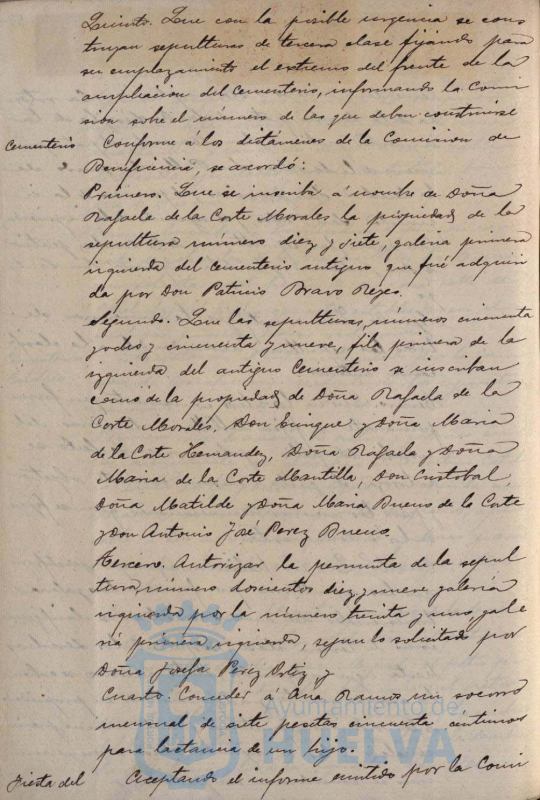 Quinto. Que con la posible urgencia se cons
truyan sepulturas de tercera clase fijando para
su emplazamiento el extremo del frente de la
ampliacion del cementerio, informando la Comi
sion sobre el número de las que deban construirse
Cementerio Conforme á los dictámenes de la Comision de
Beneficencia, se acordó:
Primero. Que se inscriba á nombre de Doña
Rafaela de la Corte Morales la propiedad de la
sepultura número diez y siete, galeria primera
izquierda del cementerio antiguo que fué adquiri
da por Don Patricio Bravo Reyes.
Segundo. Que las sepulturas, números cincuenta
y ocho y cincuenta y nueve, fila primera de la
izquierda del antiguo Cementerio se inscriban
como de la propiedad de Doña Rafaela de la
Corte Morales, Don Enrique y Doña Maria
de la Corte Hernandez, Doña Rafaela y Doña
Maria de la Corte Mantilla, Don Cristobal,
Doña Matilde y Doña Maria Bueno de la Corte
y Don Antonio José Perez Bueno.
Tercero. Autorizar la permuta de la sepul
tura, número doscientos diez y nueve galería
izquierda por la número treinta y uno, gale
ria primera izquierda, segun lo solicitado por
Doña Josefa Perez Ortiz y
Cuarto. Conceder á Ana Ramos un socorro
mensual de siete pesetas cincuenta centimos
para lactancia de un hijo.
Fiesta del Aceptando el informe emitido por la Comi
Ayuntamiento de
HUELVA